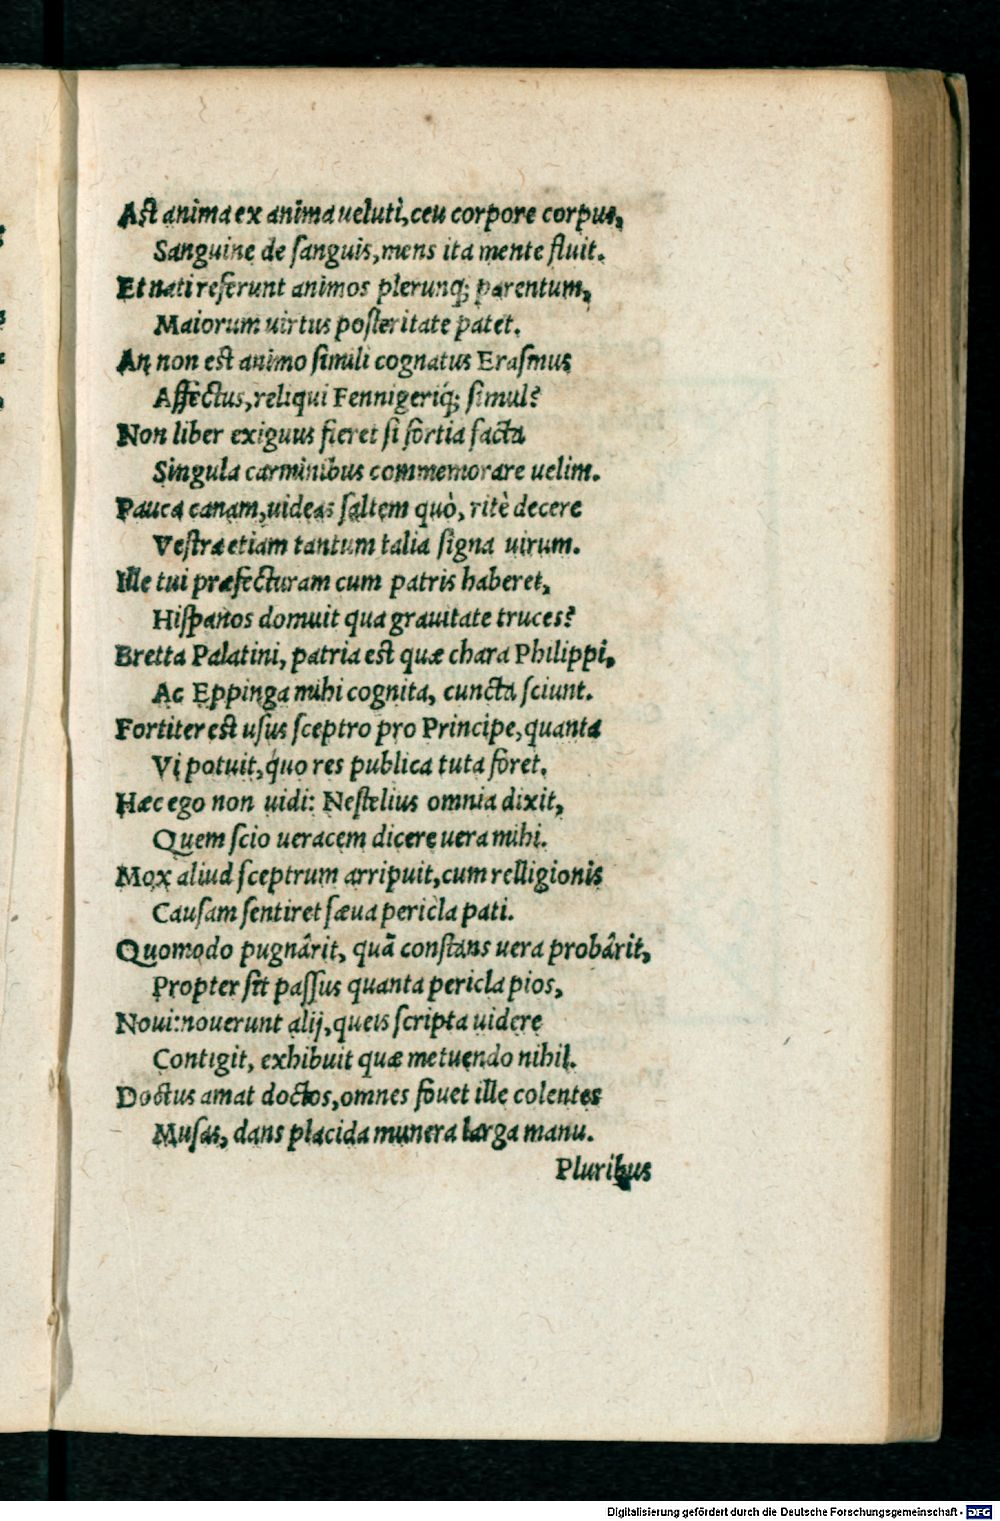 Aſt anima ex anima ueluti, ceu corpore corpus,
Sanguine de ſanguis, mens ita mente fluit.
Et nati referunt animos plerunq; parentum,
Maiorum uirtus poſteritate patet.
An non eſt animo ſimili cognatus Eraſmus
Affectus, reliqui Fennigeriq́; ſimul?
Non liber exiguus fieret ſi fortia facta
Singula carminibus commemorare uelim.
Pauca canam, uideas ſaltem quò, ritè decere
Veſtra etiam tantum talia ſigna uirum.
Ille tui præfecturam cum patris haberet,
Hiſpanos domuit qua grauitate truces?
Bretta Palatini, patria eſt quæ chara Philippi,
Ac Eppinga mihi cognita, cuncta ſciunt.
Fortiter eſt uſus ſceptro pro Principe, quanta
Vi potuit, quo res publica tuta foret.
Hæc ego non uidi: Neſtelius omnia dixit,
Quem ſcio ueracem dicere uera mihi.
Mox aliud ſceptrum arripuit, cum relligionis
Cauſam ſentiret ſæua pericla pati.
Quomodo pugnârit, quā conſtans uera probârit,
Propter ſit paſſus quanta pericla pios,
Noui: nouerunt alij, queis ſcripta uidere
Contigit, exhibuit quæ metuendo nihil.
Doctus amat doctos, omnes fouet ille colentes
Muſas, dans placida munera larga manu.
Pluribus
Digitalisierung gefördert durch die Deutsche Forschungsgemeinschaft - DFG